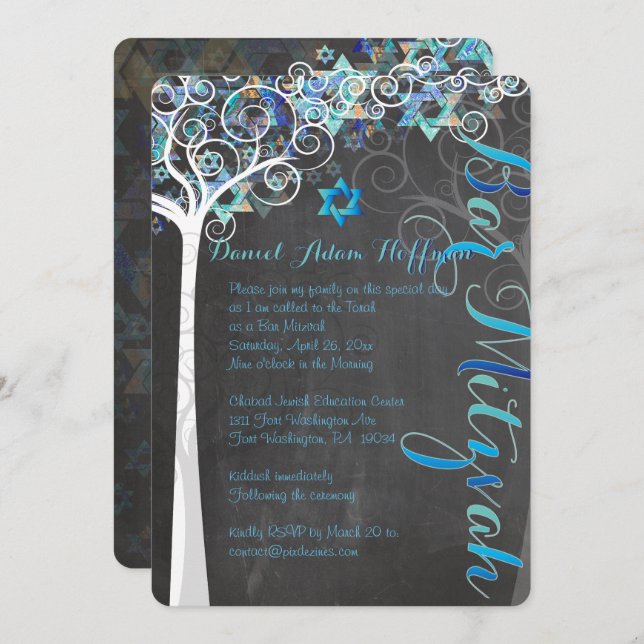 Bar Mitzvah
Daniel Adam Hoffman
Please join my family on this special day
as I am called to the Torah
as a Bar Mitzvah
Saturday, April 26, 20xx
Nine o'clock in the Morning
Chabad Jewish Education Center
1311 Fort Washington Ave
Fort Washington, PA 19034
Kiddush immediately
Following the ceremony
Kindly RSVP by March 20 to:
contact@pixdezines.com